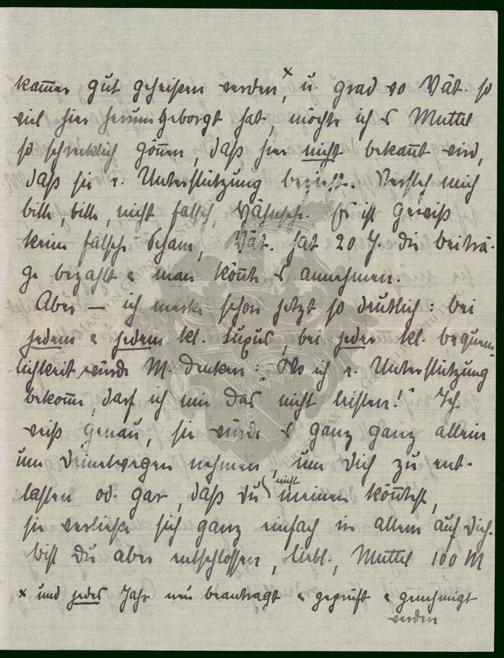 kam̄er gut geheißen werden,ˣ u. grad wo Vät. so
viel hier herumgeborgt hat, möchte ich s Muttel
so schrecklich gön̄en, daß hier nicht bekan̄t wird,
daß sie e. Unterstützung bezieht. Versteh mich
bitte, bitte, nicht falsch, Es ist gewiß
keine falsche Scham, Vät. hat 20 J. die beiträ-
ge bezahlt & man kön̄te s annehmen.
Aber — ich merke schon jetzt so deutlich: bei
jedem & jedem kl. Luxus bei jeder kl. bequem-
lichkeit würde M. denken: "Wo ich e. Unterstützung
bekom̄e, darf ich mir das nicht leisten!" Ich
weiß genau, sie würde s ganz ganz allein
um Deinetwegen nehmen, um Dich zu ent-
lasten od. gar, daß Du nicht meinen kön̄test,
sie verließe sich ganz einfach in allem auf Dich.
bist Du aber entschlossen, liebl., Muttel 100 M
x und jedes Jahr neu beantragt & geprüft & genehmigt
werden